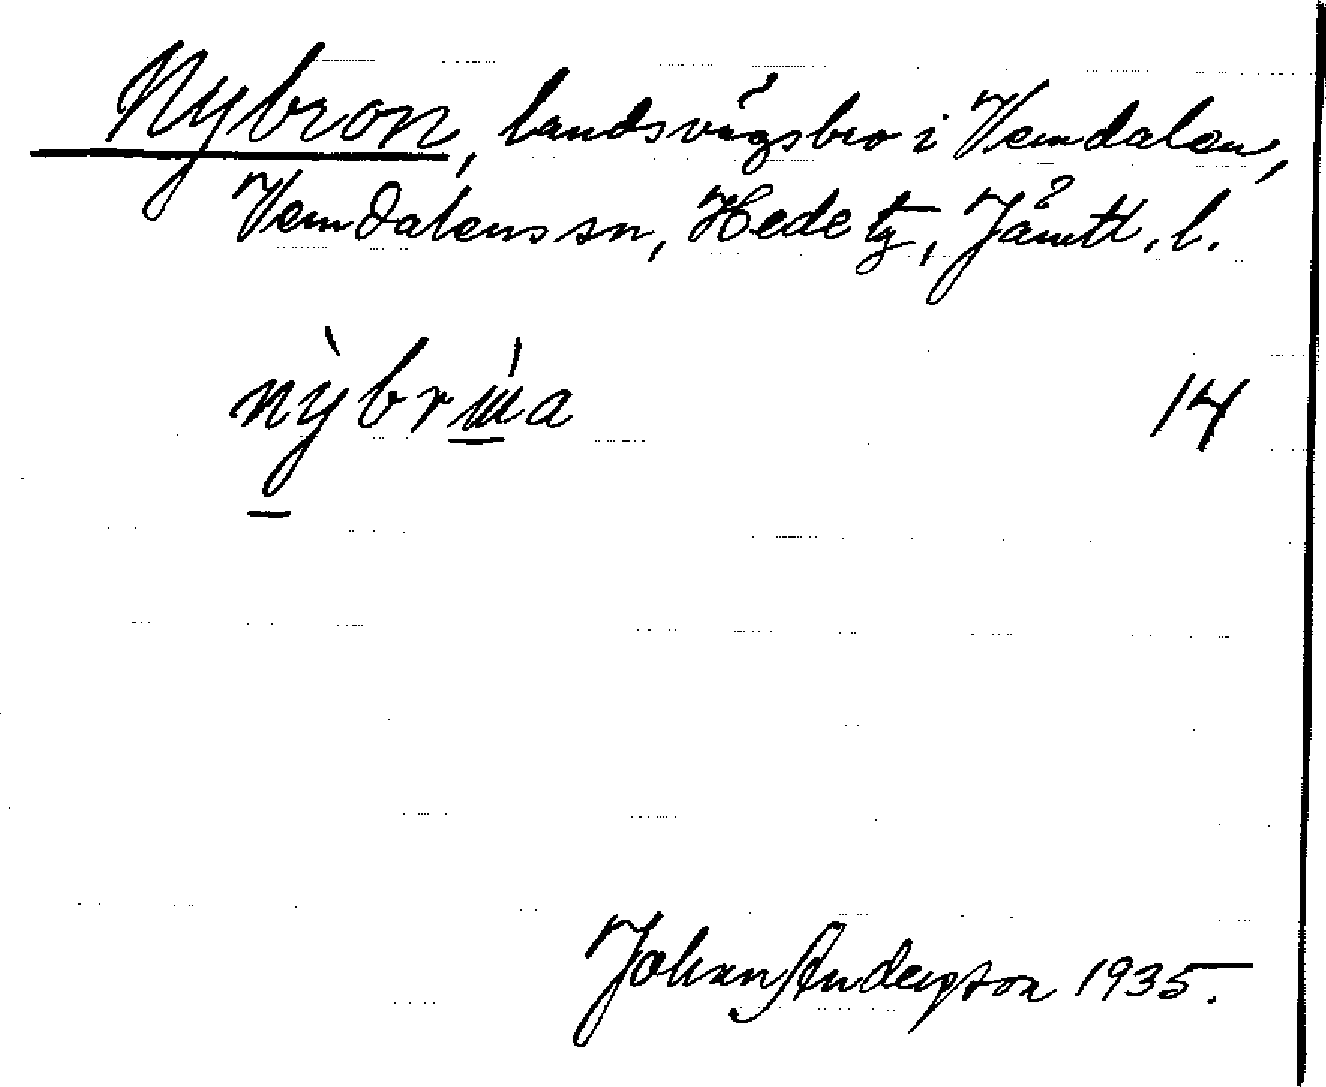 Nybron, landsvägsbro i Vemdalen,
Vemdalens sn, Hede tg, Jämtl. l.
14
Johan Anderson 1935.